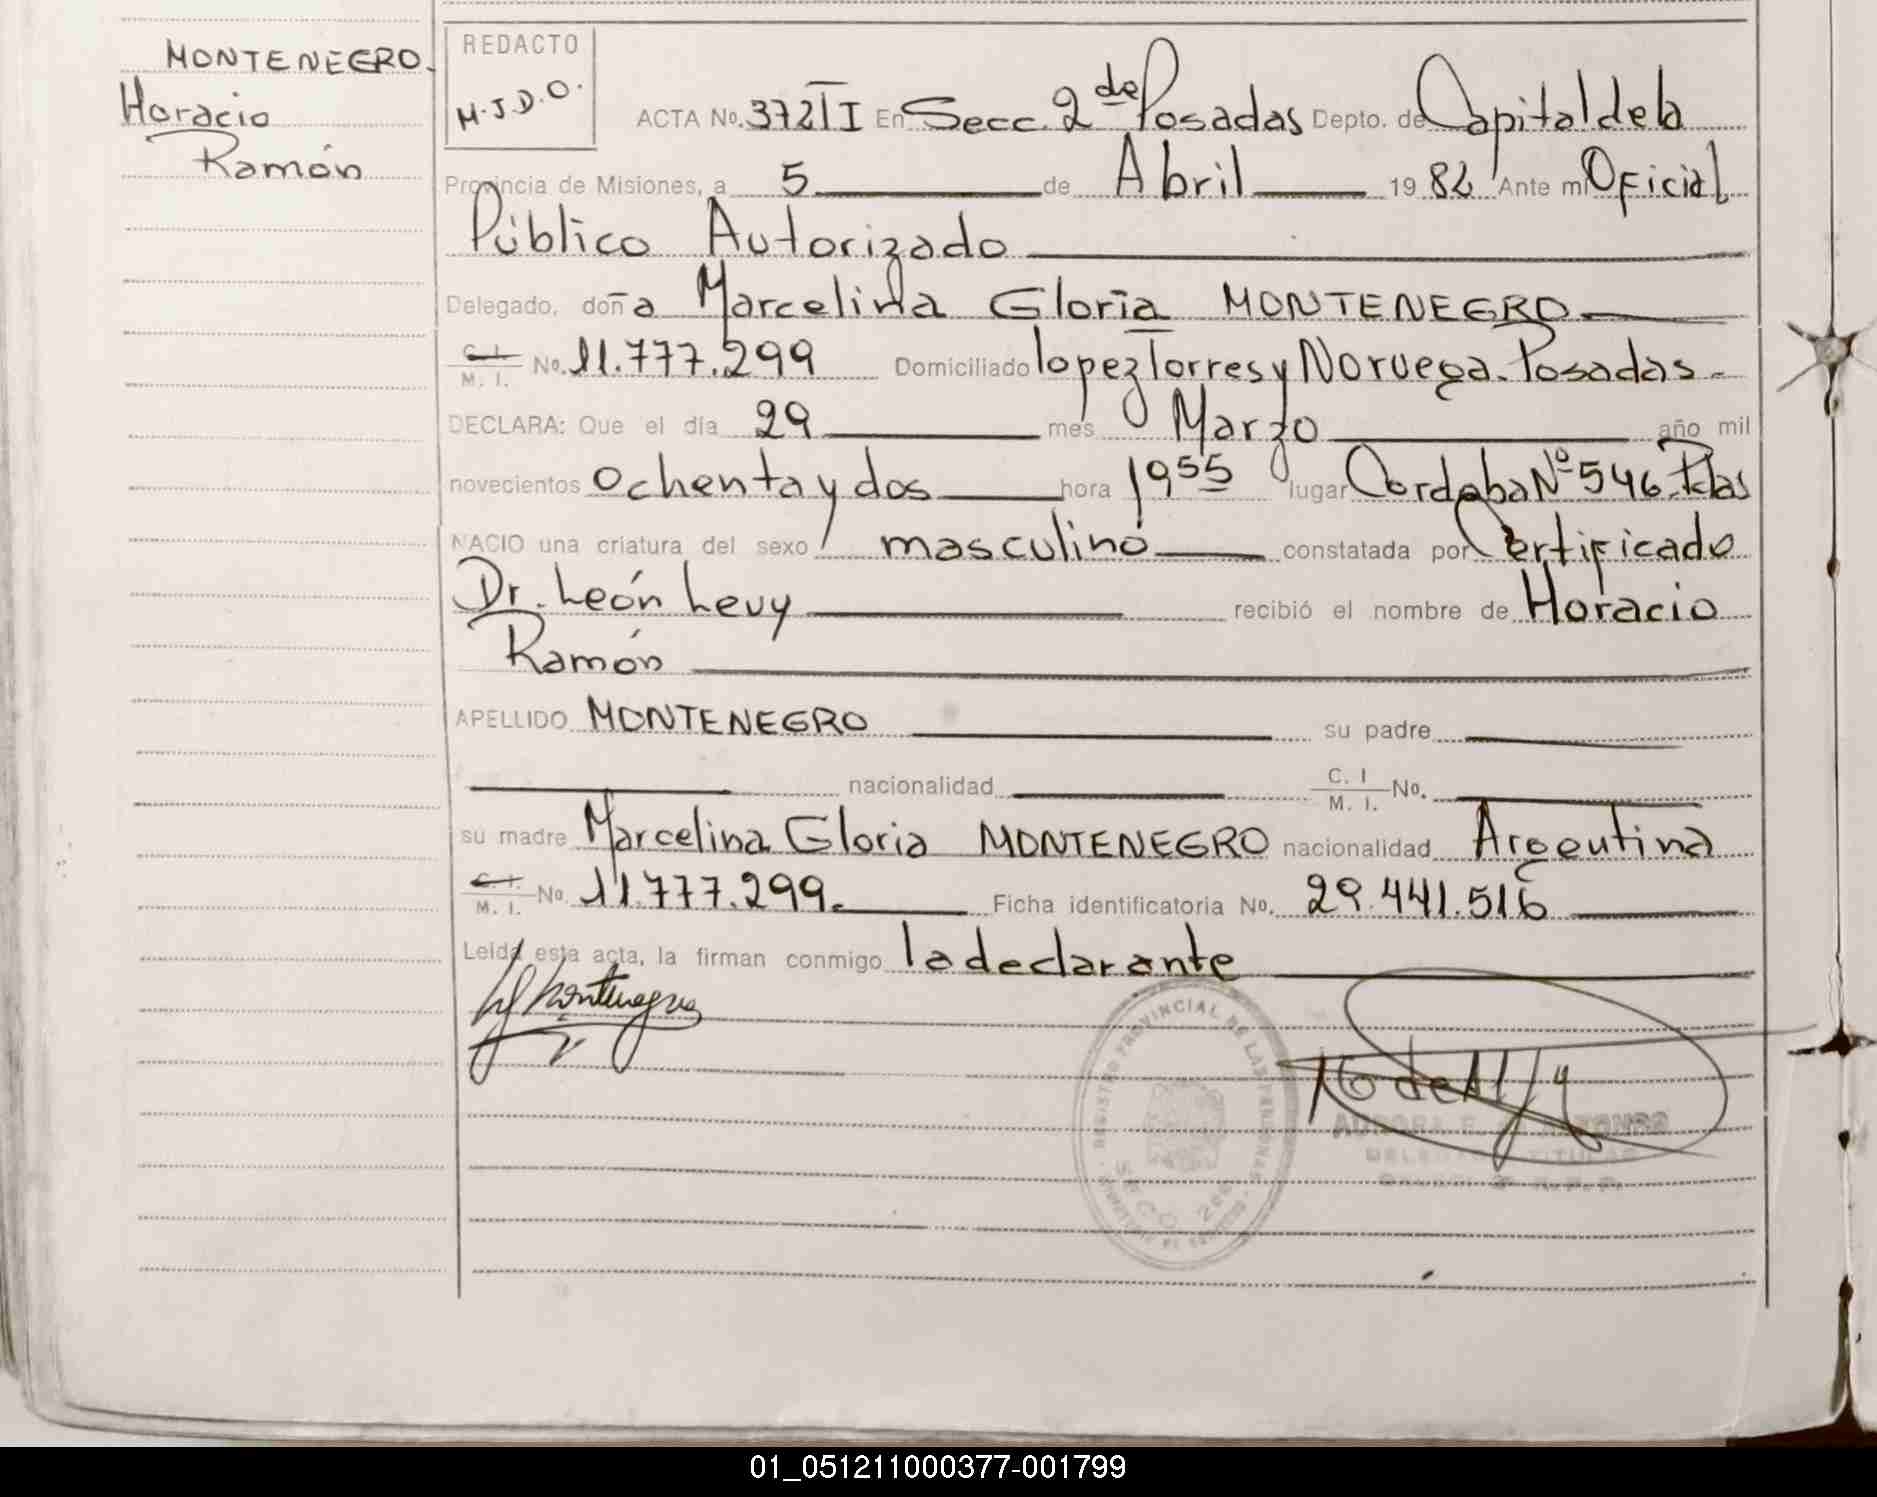 MONTENEGRO.
Horacio
Ramón
REDACTO
M.J.D.O.
ACTA No. 372 TI En Secc. 2da Posadas Depto. de Capital de la
Provincia de Misiones, a 5 de Abril 1982 Ante mi Oficial
Público Autorizado
Delegado, doña Marcelina Gloria MONTENEGRO
C. I. M. I. No. 11.777.299 Domiciliado lopez Torres y Noruega. Posadas.-
DECLARA: Que el día 29 mes Marzo año mil
novecientos ochenta y dos hora 1955 lugar Cordoba Nº 546. Pdas
NACIO una criatura del sexo masculino constatada por Certificado
Dr. León Levy recibió el nombre de Horacio
Ramón
APELLIDO MONTENEGRO su padre
nacionalidad C. I M. I. No.
su madre Marcelina Gloria MONTENEGRO nacionalidad Argentina
C. I. M. I. No. 11.777.299. Ficha identificatoria No. 29.441.516
Leida esta acta, la firman conmigo la declarante
Montenegro
REGISTRO PROVINCIAL DE LAS PERSONAS
SECC. 2da
DELEGADA TITULAR
01_051211000377-001799